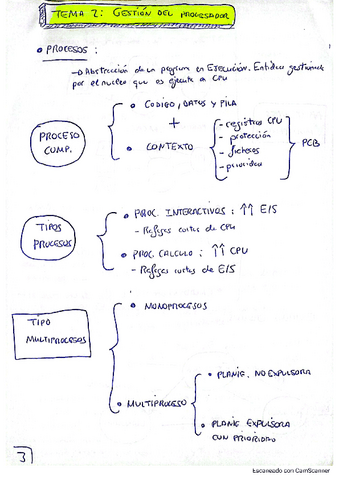 TEMA 2: GESTIÓN DEL PROCESADOR
• PROCESOS:
→ Abstracción de un program en Ejecución. Entidad gestionada
por el núcleo que es ejecuta a CPU
PROCESO
COMP.
• CODIGO, DATOS Y PILA
+
• CONTEXTO
- registros CPU
- protección
- ficheros
- prioridad
PCB
TIPOS
PROCESOS
• PROC. INTERACTIVOS: ↑↑ E/S
- Ráfagas cortas de CPU
• PROC. CALCULO: ↑↑ CPU
- Ráfagas cortas de E/S
TIPO
MULTIPROCESOS
• MONOPROCESOS
• MULTIPROCESO
• PLANIF. NO EXPULSORA
• PLANIF EXPULSORA
CON PRIORIDAD
3
Escaneado con CamScanner